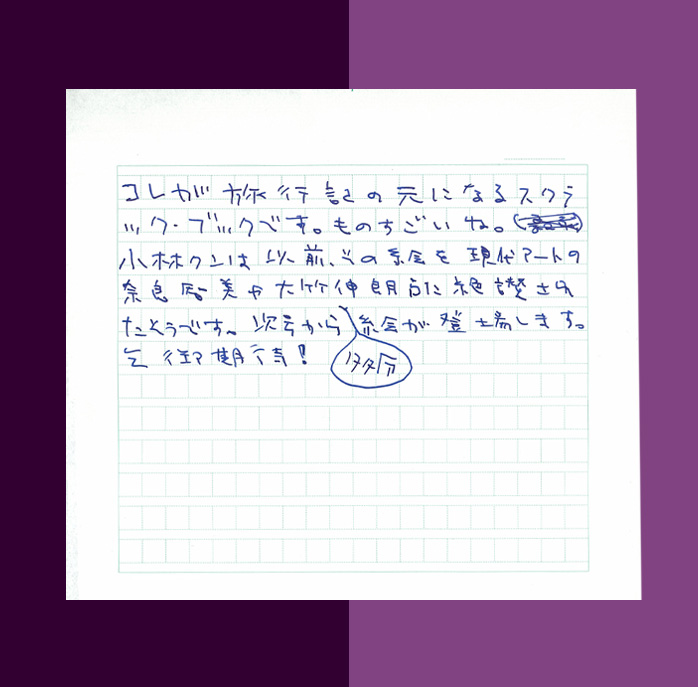 コレが旅行記の元になるスクラ
ップ・ブックです。ものすごいね。
小林クンは以前、その絵を現代アートの
奈良美や大竹伸朗に絶賛され
たそうです。次号から絵が登場します。
乞御期待!
多分